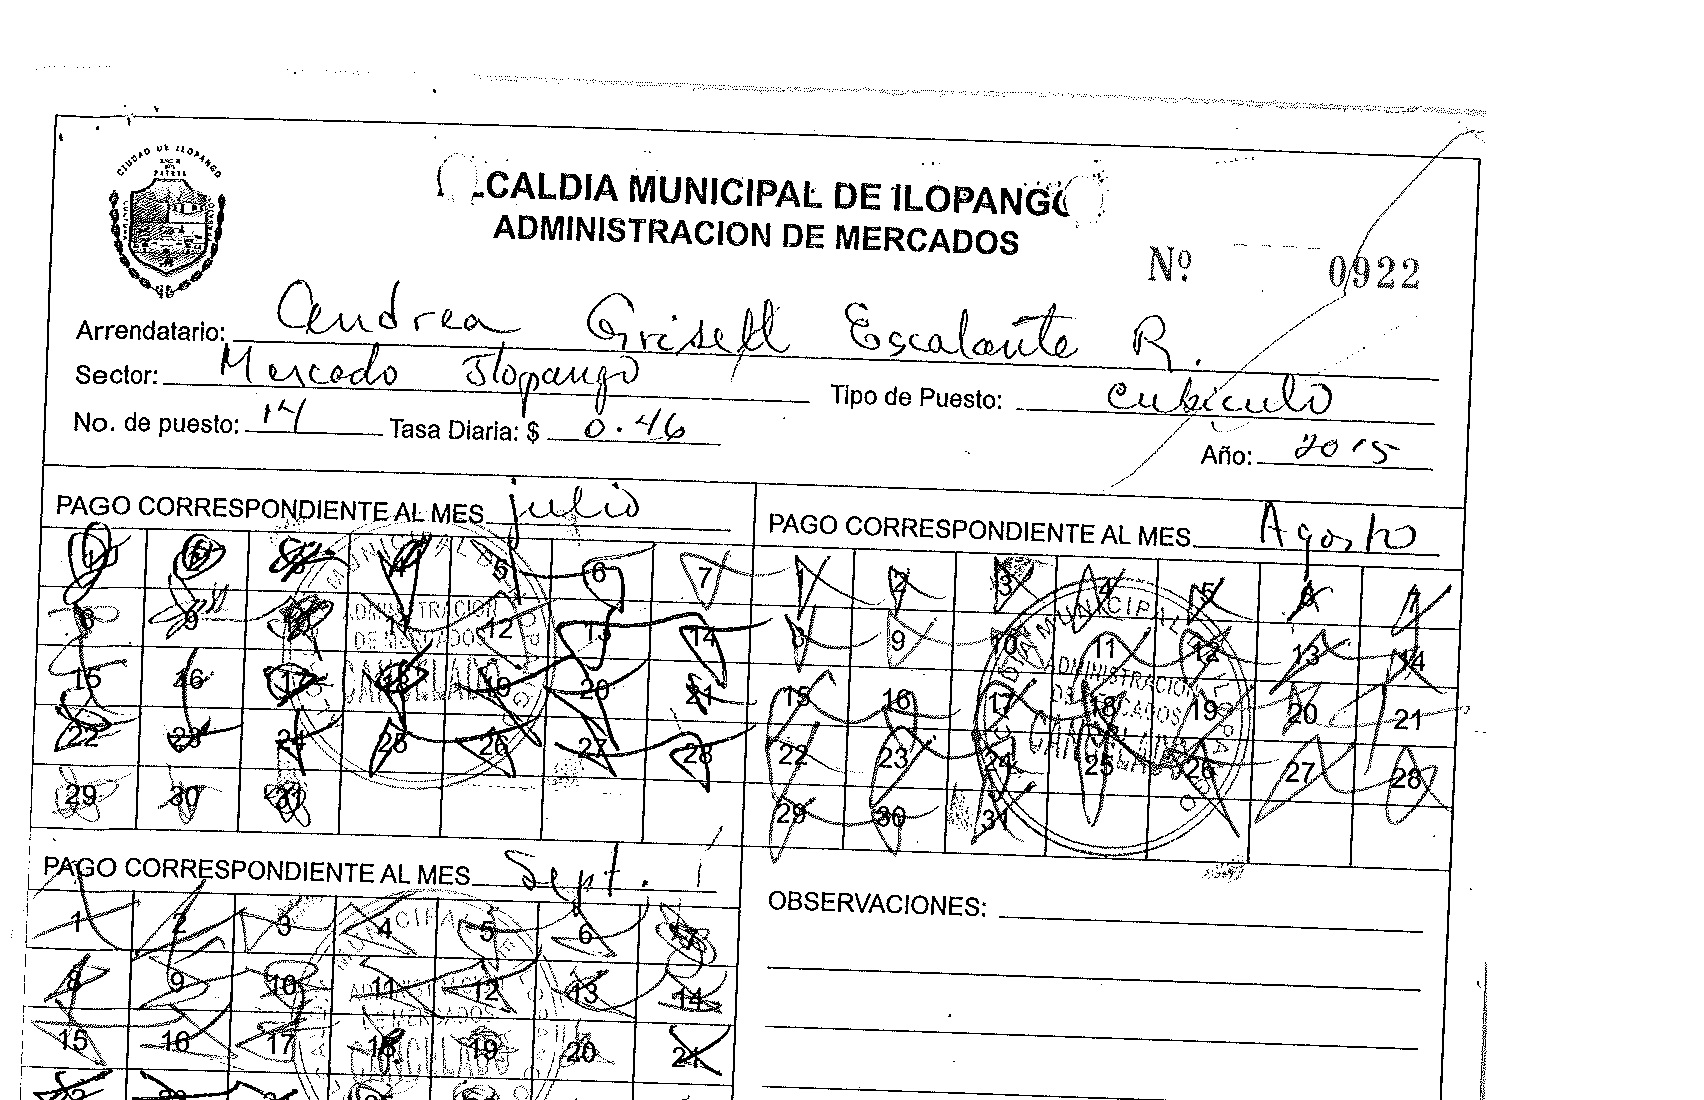 CIUDAD DE ILOPANGO
ALCALDIA MUNICIPAL DE ILOPANGO
ADMINISTRACION DE MERCADOS
Nº 0922
Arrendatario: Andrea Grisell Escalante R.
Sector: Mercado Ilopango
Tipo de Puesto: cubiculo
No. de puesto: 14 Tasa Diaria: $ 0.46
Año: 2015
PAGO CORRESPONDIENTE AL MES julio
1 2 3 4 5 6 7
8 9 10 11 12 13 14
15 16 17 18 19 20 21
22 23 24 25 26 27 28
29 30 31
MUNICIPAL DE ILOPANGO
ADMINISTRACION
DE MERCADOS
CANCELADO
PAGO CORRESPONDIENTE AL MES Agosto
1 2 3 4 5 6 7
8 9 10 11 12 13 14
15 16 17 18 19 20 21
22 23 24 25 26 27 28
29 30 31
ALCALDIA MUNICIPAL DE ILOPANGO
ADMINISTRACION
DE MERCADOS
CANCELADO
PAGO CORRESPONDIENTE AL MES Sept.
1 2 3 4 5 6 7
8 9 10 11 12 13 14
15 16 17 18 19 20 21
MUNICIPAL
ADMINISTRACION
DE MERCADOS
CANCELADO
OBSERVACIONES: